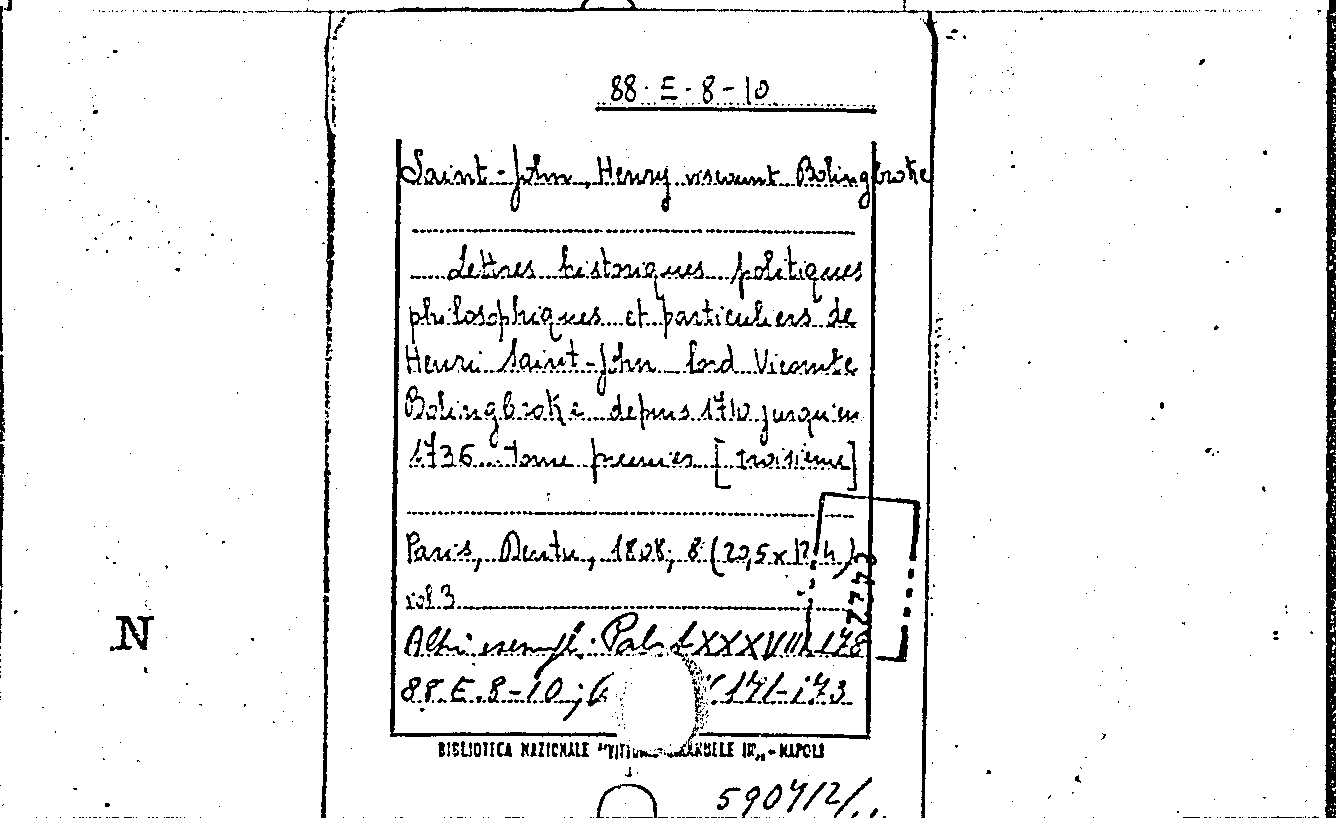 88. E. 8-10
Saint-John, Henry viscount Bolingbroke
Lettres historiques politiques
philosophiques et particuliers de
Henri Saint-John lord Vicomte
Bolingbroke depuis 1710 jusqu'en
1736 tome premier [troisième]
Paris, Dentu, 1808, 8 (20,5x12,4)
vol 3
Altri esempl. Pal. LXXXVIII 178
88. E. 8-10; 171-173
N
BIBLIOTECA NAZIONALE "VITTORIO EMANUELE III" - NAPOLI
590712/